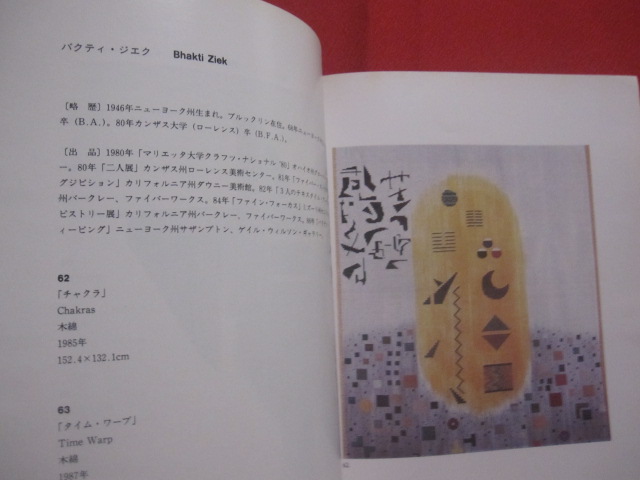 バクティ・ジエク Bhakti Ziek
〔略 歴〕1946年ニューヨーク州生まれ。ブルックリン在住。68年ニューヨーク
卒（B.A.）。80年カンザス大学（ローレンス）卒（B.F.A.）。
〔出 品〕1980年「マリエッタ大学クラフツ・ナショナル'80」オハイオ州
ー。80年「二人展」カンザス州ローレンス美術センター。81年「ファイバー
グジビション」カリフォルニア州ダウニー美術館。82年「3人の
州バークレー、ファイバーワークス。84年「ファイン・フォーカス」
ピストリー展」カリフォルニア州バークレー、ファイバーワークス。
ィービング」ニューヨーク州サザンプトン、ゲイル・ウィルソン・ギャラリー。
62
「チャクラ」
Chakras
木綿
1985年
152.4×132.1cm
63
「タイム・ワープ」
Time Warp
木綿
1987年
62